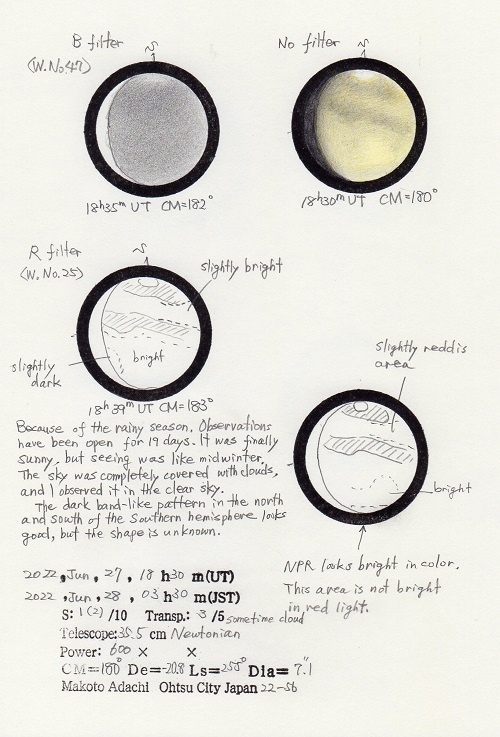 B filter
(W.No.47)
S
18h35m UT CM=182°
No filter
S
18h30m UT CM=180°
R filter
(W.No.25)
S
slightly bright
slightly
dark
bright
18h39m UT CM=183°
slightly reddis
area
bright
Because of the rainy season. Observations
have been open for 19 days. It was finally
sunny, but seeing was like midwinter.
The sky was completely covered with clouds,
and I observed it in the clear sky.
The dark band-like pattern in the north
and south of the Southern hemisphere looks
good, but the shape is unknown.
NPR looks bright in color.
This area is not bright
in red light.
2022, Jun, 27, 18 h 30 m(UT)
2022, Jun, 28, 03 h 30 m(JST)
S: 1(2) /10 Transp.: 3 /5 sometime cloud
Telescope: 35.5 cm Newtonian
Power: 600 × ×
CM=180° De=-20.8 Ls=255° Dia= 7."1
Makoto Adachi Ohtsu City Japan 22-56